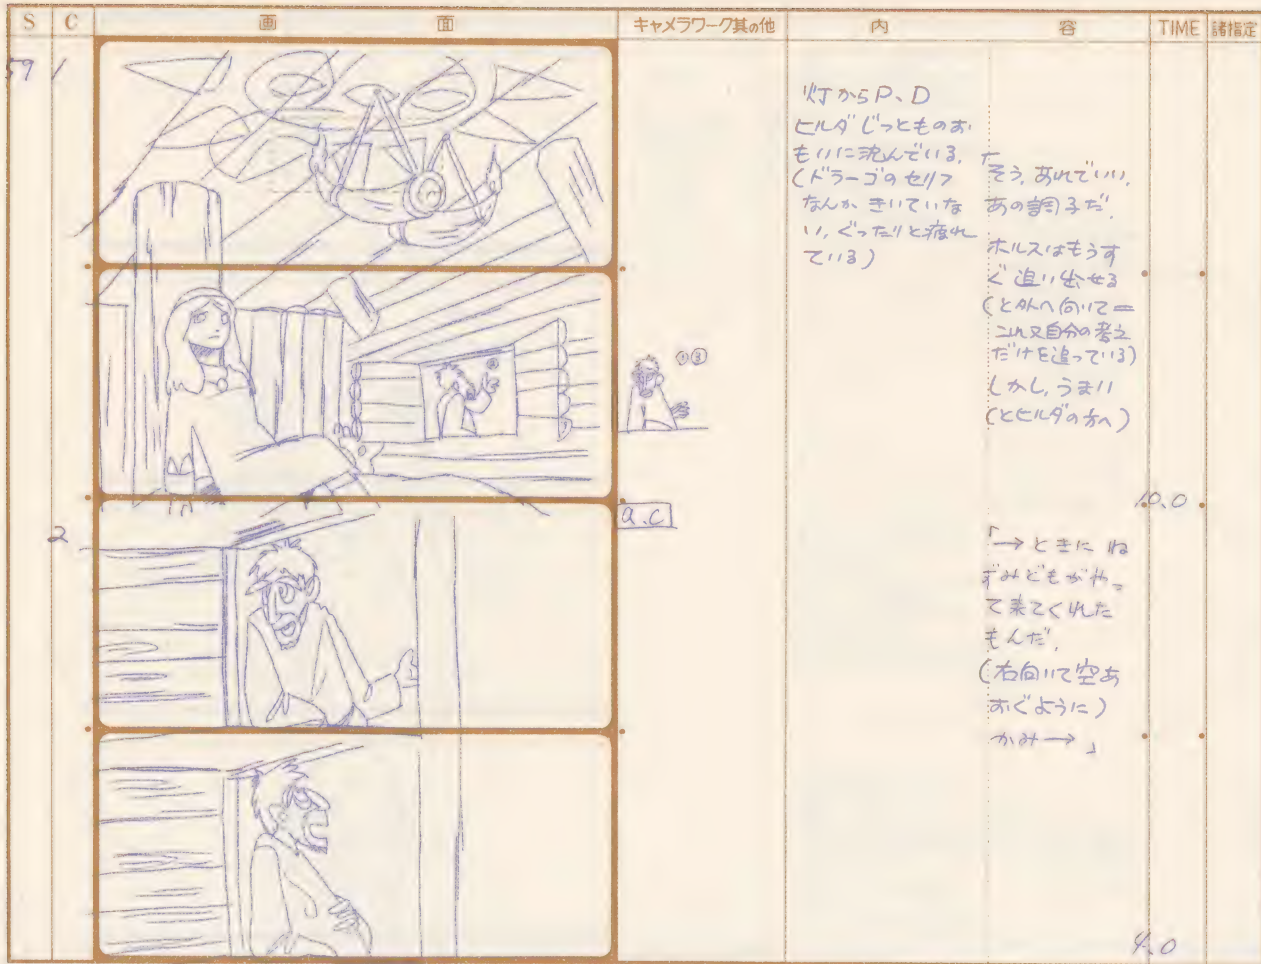 S C 画 面 キャメラワーク其の他 内 容 TIME 諸指定
59 1
灯からP、D
ヒルダじっとものお
もいに沈んでいる、
(ドラーゴのセリフ
なんか きいていな
い、ぐったりと疲れ
ている)
「そう、あれでいい、
あの調子だ、
ホルスはもうす
ぐ追い出せる
(と外へ向いて=
これ又自分の考え
だけを追っている)
しかし、うまい
(とヒルダの方へ)
②
①③
10.0
2
a.c
「→ときに ね
ずみどもがやっ
て来てくれた
もんだ、
(右向いて空あ
おぐように)
かみ→」
4.0